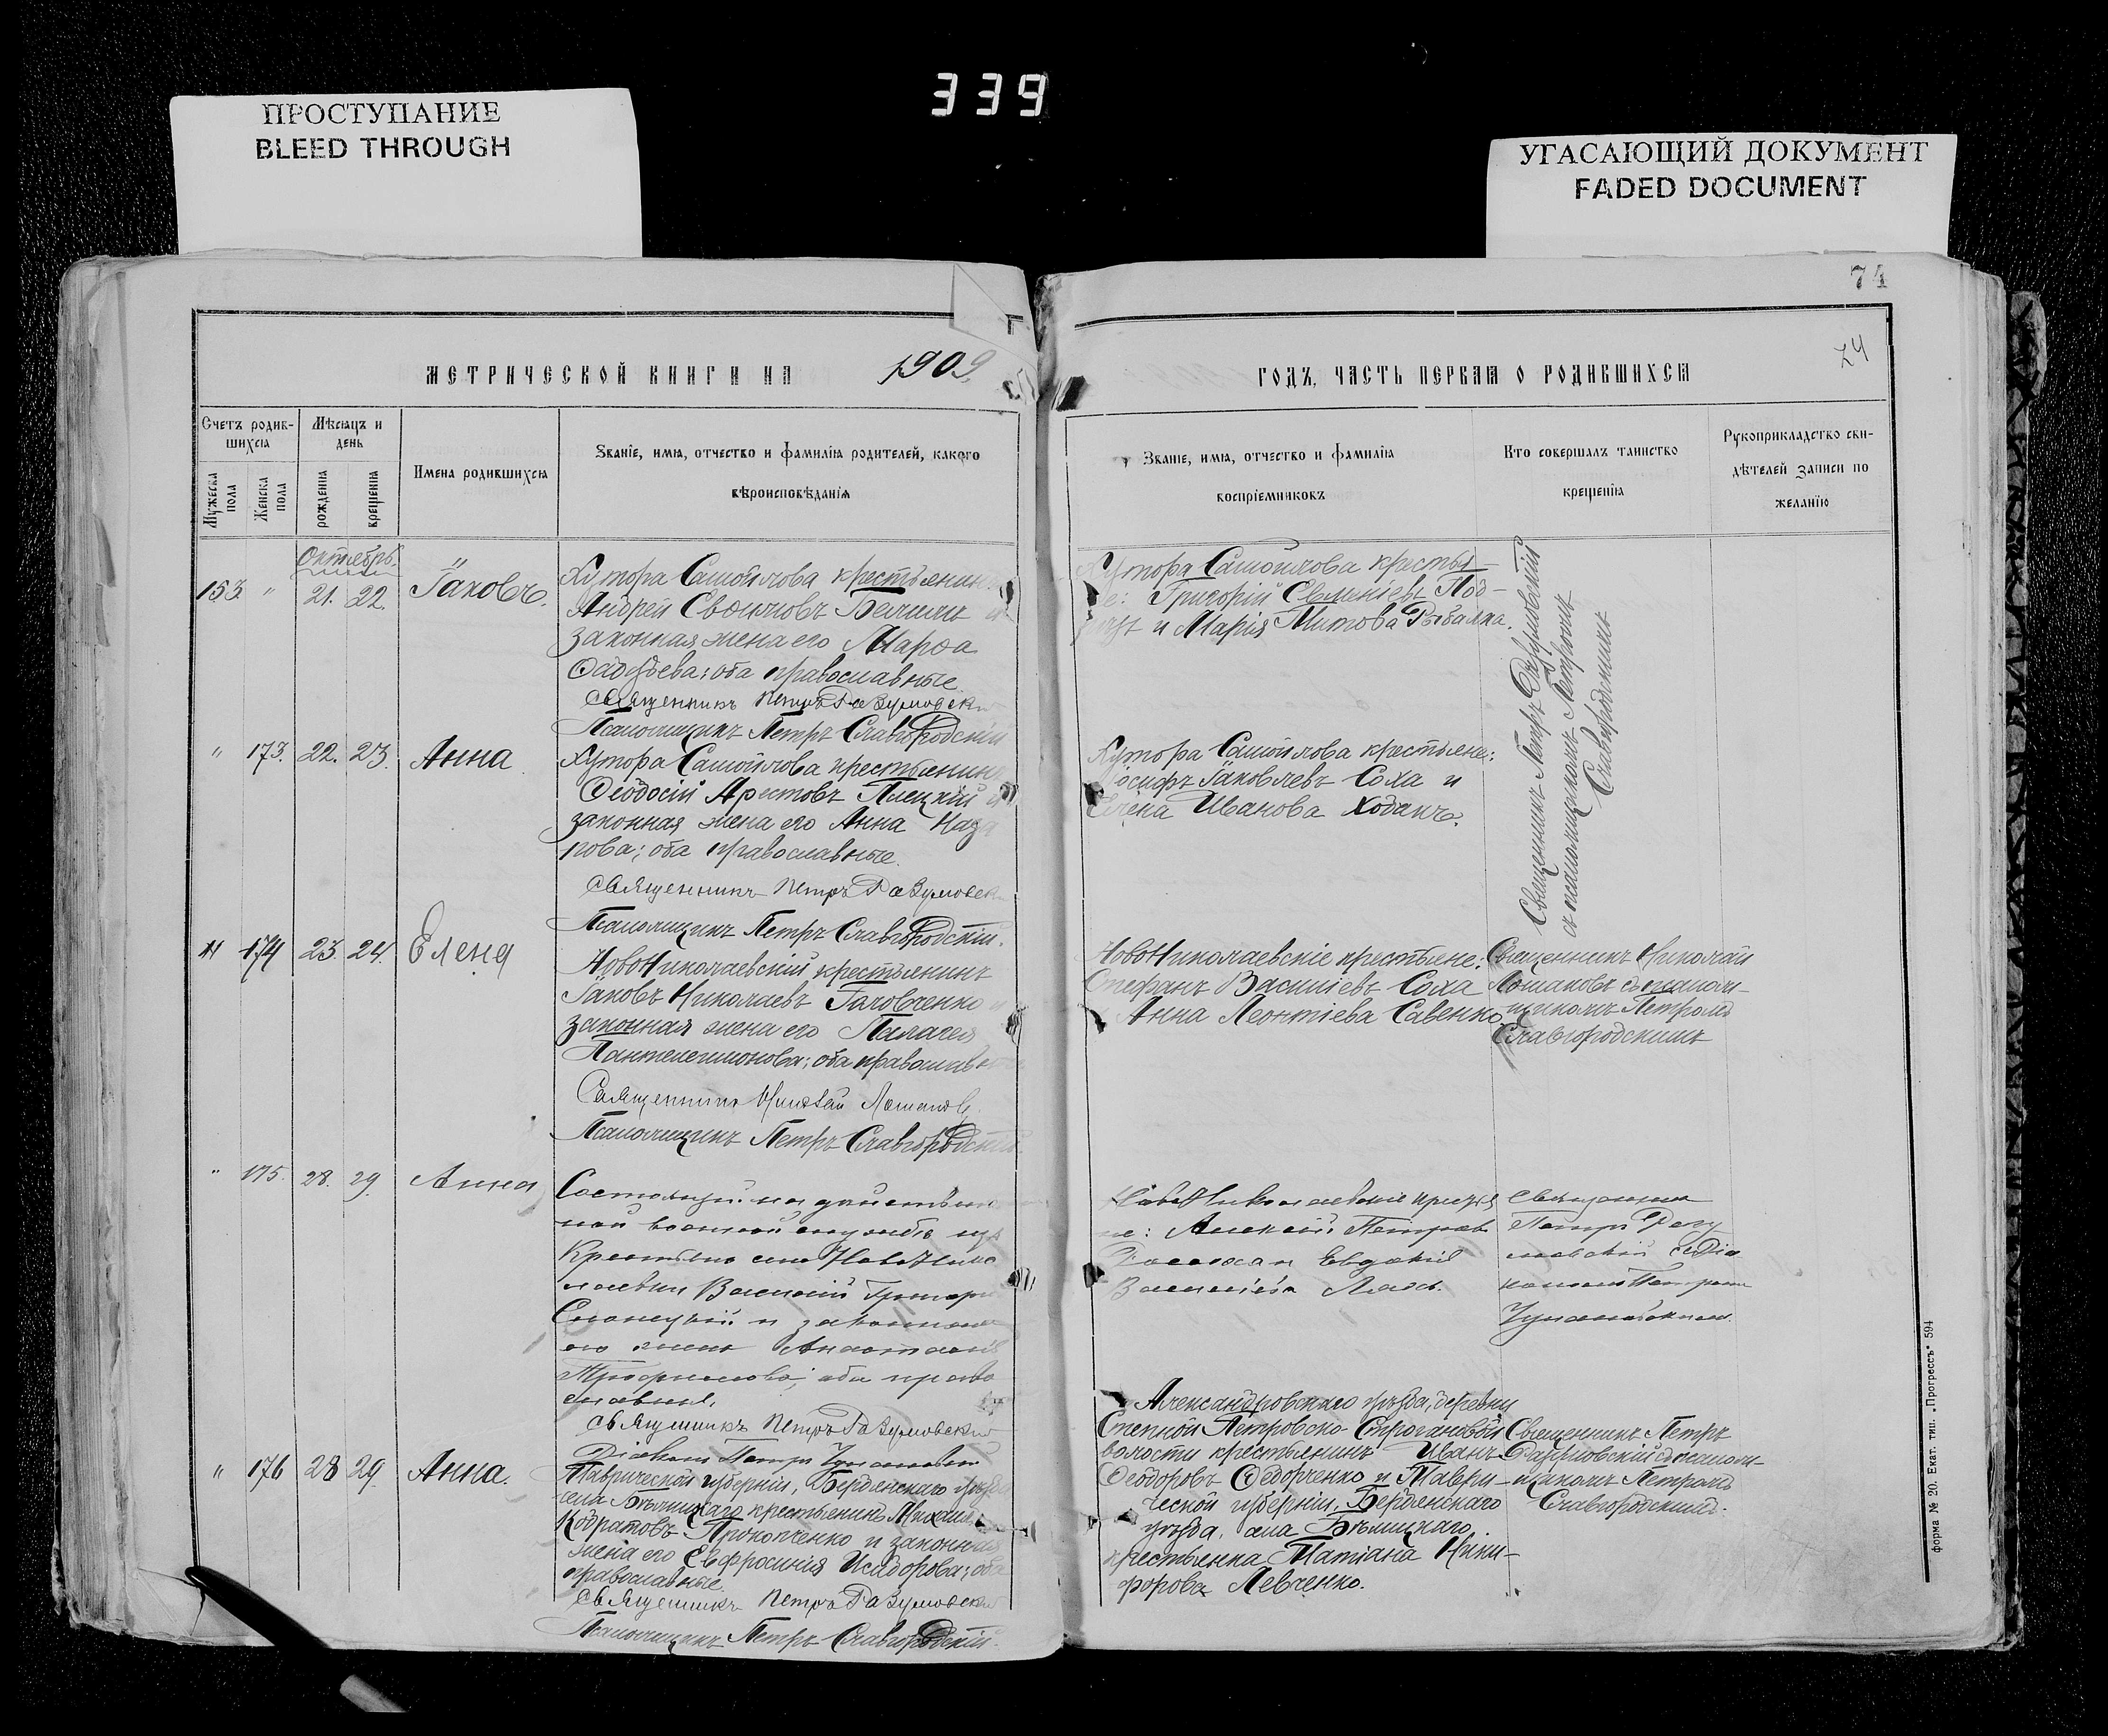 339
ПРОСТУПАНИЕ
BLEED THROUGH
УГАСАЮЩИЙ ДОКУМЕНТ
FADED DOCUMENT
74
74
МЕТРИЧЕСКОЙ КНИГИ НА 1909
ГОДЪ, ЧАСТЬ ПЕРВАЯ О РОДИВШИХСЯ
Счетъ родив-
шихся
Мѣсяцъ и
день
Имена родившихся
Званіе, имя, отчество и фамилія родителей, какого
вѣроисповѣданія
Мужеска
пола
Женска
пола
рожденія
крещенія
Званіе, имя, отчество и фамилія
воспріемниковъ
Кто совершалъ таинство
крещенія
Рукоприкладство сви-
дѣтелей записи по
желанію
Октябрь
153 " 21. 22. Іаковъ.
Хутора Самойлова крестьянинъ
Андрей
законная жена его Марѳа
оба православные
Священникъ Петръ Разумовскій
Псаломщикъ Петръ Славгородскій
Хутора Самойлова крестья-
не: Григорій Под-
и Марія Титова Рыбалка.
Священникъ Петръ Разумовскій
съ псаломщикомъ Петромъ
Славгородскимъ
" 173. 22. 23. Анна
Хутора Самойлова крестьянинъ
Ѳеодосій
законная жена его Анна Наза
рова; оба православные.
Священникъ Петръ Разумовскій
Псаломщикъ Петръ Славгородскій.
Хутора Самойлова крестьяне:
Іосифъ Іаковлевъ Соха и
Елена Иванова Ходакъ.
" 174 23. 24. Елена
НовоНиколаевскій крестьянинъ
Іаковъ Николаевъ Головченко и
законная жена его Палагея
Пантелеимонова; оба православные
Священникъ Николай Лошаковъ
Псаломщикъ Петръ Славгородскій
НовоНиколаевскіе крестьяне:
Стефанъ Василіевъ Соха
Анна Леонтіева Савенко
Священникъ Николай
Лошаковъ съ псалом-
щикомъ Петромъ
Славгородскимъ
" 175. 28. 29. Анна
Состоящій на дѣйствитель
ной военной службѣ изъ
Крестьянъ села НовоНико
лаевки Василій Григорі
и законная
его жена Анастасія
Трофимова; оба право
славные.
Священникъ Петръ Разумовскій
Діаконъ Петръ
НовоНиколаевскіе крестья
не: Алексій Петровъ
и Евдокія
Василіева
Священникъ
Петръ Разу
мовскій съ Діа
кономъ Петромъ
" 176 28 29. Анна.
Таврической губерніи, Бердянскаго уѣзда
села Бѣлицкаго крестьянинъ Михаилъ
Кодратовъ Прокопченко и законная
жена его Евфросинія Исидорова; оба
православные.
Священникъ Петръ Разумовскій
Псаломщикъ Петръ Славгородскій.
Александровскаго уѣзда, деревни
Степной Петровско-Строгановой
волости крестьянинъ Иванъ
Ѳеодоровъ Ѳедорченко и Таври-
ческой губерніи, Бердянскаго
уѣзда, села Бѣлицкаго
крестьянка Татіана Ники-
форова Левченко.
Священникъ Петръ
Разумовскій съ псалом-
щикомъ Петромъ
Славгородскимъ.
форма № 20. Екат. тип. „Прогрессъ“ 594